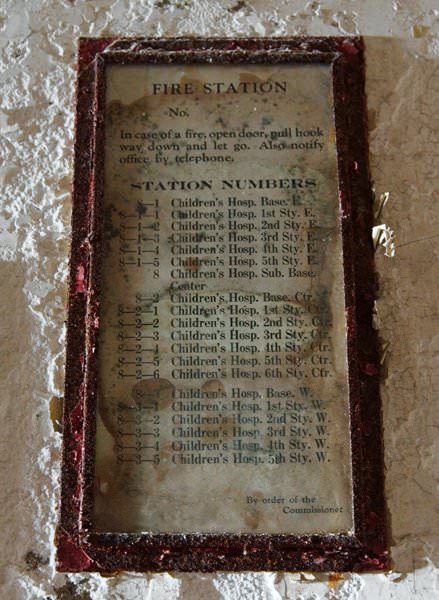 FIRE STATION
No.
In case of a fire, open door, pull hook
way down and let go. Also notify
office by telephone.
STATION NUMBERS
8—1 Children's Hosp. Base. E.
8—1—1 Children's Hosp. 1st Sty. E.
8—1—2 Children's Hosp. 2nd Sty. E.
8—1—3 Children's Hosp. 3rd Sty. E.
8—1—4 Children's Hosp. 4th Sty. E.
8—1—5 Children's Hosp. 5th Sty. E.
8 Children's Hosp. Sub. Base.
Center
8—2 Children's Hosp. Base. Ctr.
8—2—1 Children's Hosp. 1st Sty. Ctr.
8—2—2 Children's Hosp. 2nd Sty. Ctr.
8—2—3 Children's Hosp. 3rd Sty. Ctr.
8—2—4 Children's Hosp. 4th Sty. Ctr.
8—2—5 Children's Hosp. 5th Sty. Ctr.
8—2—6 Children's Hosp. 6th Sty. Ctr.
Children's Hosp. Base. W.
8—3—1 Children's Hosp. 1st Sty. W.
8—3—2 Children's Hosp. 2nd Sty. W.
8—3—3 Children's Hosp. 3rd Sty. W.
8—3—4 Children's Hosp. 4th Sty. W.
8—3—5 Children's Hosp. 5th Sty. W.
By order of the
Commissioner